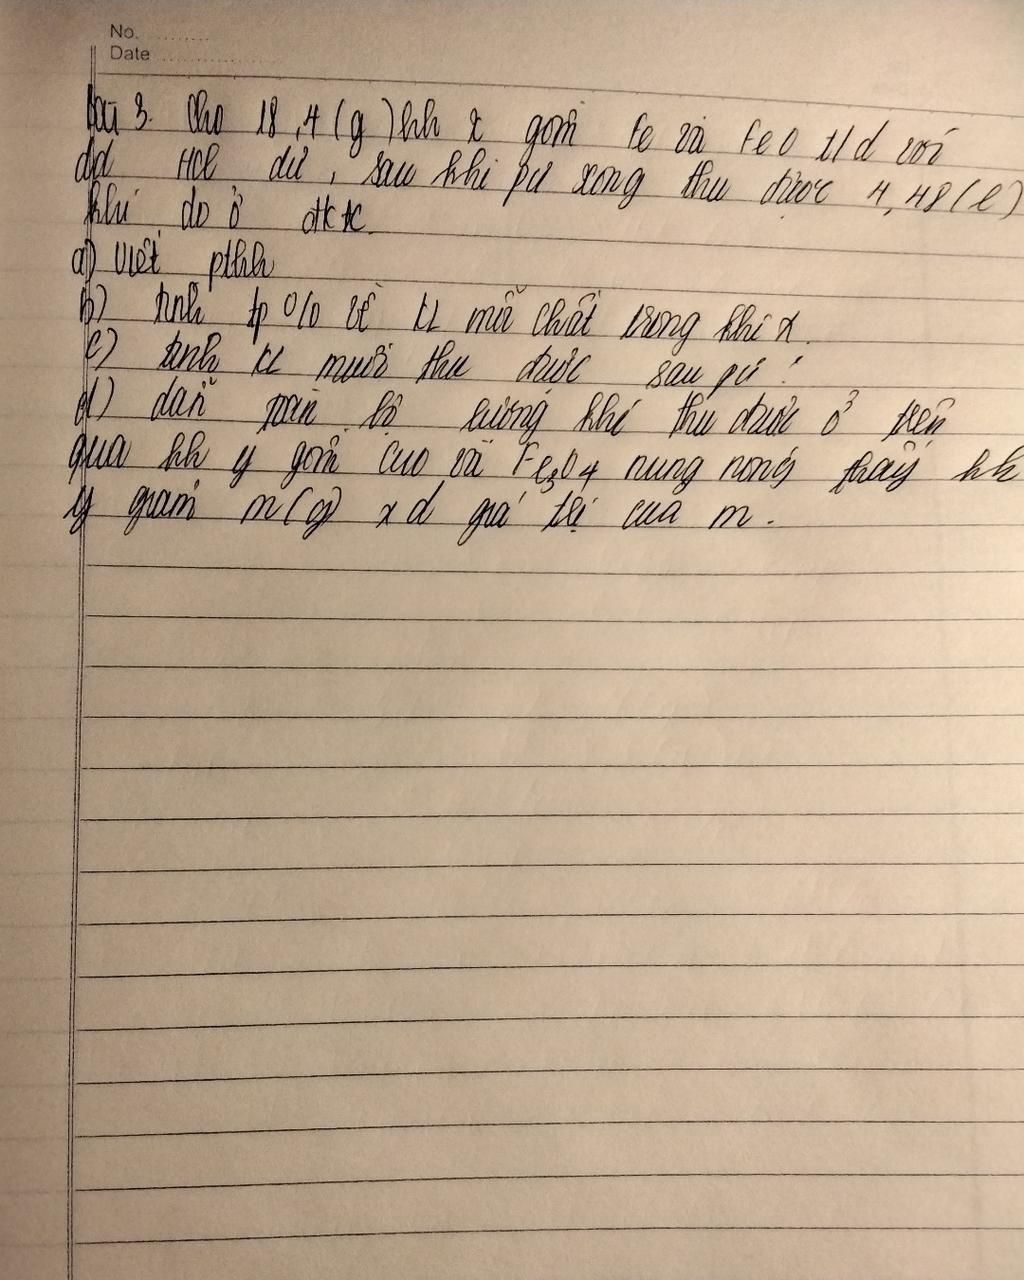 No. ............
Date ....................
Bài 3. Cho 18,4(g) hh x gồm Fe và FeO t/d với
dd HCl dư, sau khi pư xong thu được 4,48(l)
khí đo ở đktc.
a) Viết pthh
b) tính tp % về KL mỗi chất trong khí x.
c) tính KL muối thu được sau pư?
d) dẫn toàn bộ lượng khí thu được ở trên
qua hh y gồm CuO và Fe3O4 nung nóng thấy hh
y giảm m(g) xđ giá trị của m.